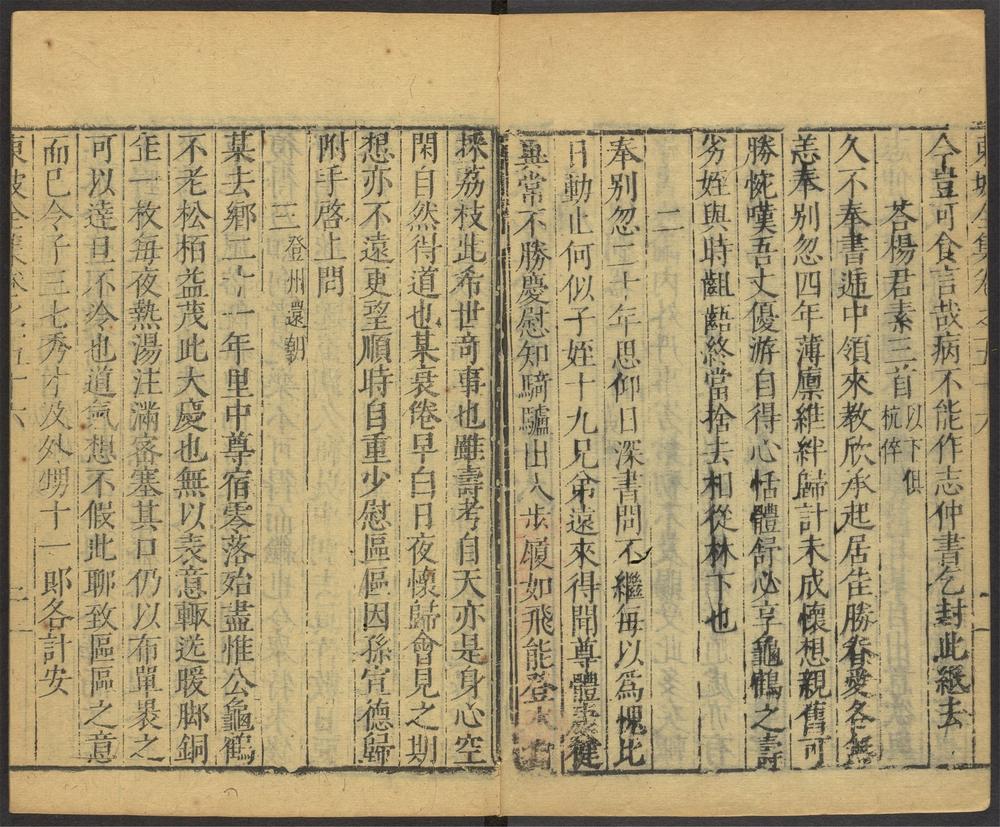 東坡全集卷之五十六
今豈可食言哉病不能作志仲書乞封此紙去
答楊君素三首以下俱杭倅
久不奉書遞中領來教欣承起居佳勝眷愛各無
恙奉別忽四年薄廩維絆歸計未成懷想親舊可
勝惋嘆吾丈優游自得心恬體舒必享龜鶴之壽
劣姪與時齟齬終當捨去相從林下也
二
奉別忽二十年思仰日深書問不繼每以爲愧比
日動止何似子姪十九兄弟遠來得聞尊體康健
異常不勝慶慰知騎驢出入步履如飛能登木
採荔枝此希世竒事也雖壽考自天亦是身心空
閑自然得道也某衰倦早白日夜懷歸會見之期
想亦不遠更望順時自重少慰區區因孫宣德歸
附手啓上問
三登州還朝
某去鄉二十一年里中尊宿零落殆盡惟公龜鶴
不老松栢益茂此大慶也無以表意輙送暖脚銅
缶一枚每夜熱湯注滿密塞其口仍以布單裹之
可以達旦不冷也道氣想不假此聊致區區之意
而已令子三七秀才及外甥十一郎各計安
東坡全集卷之五十六
二